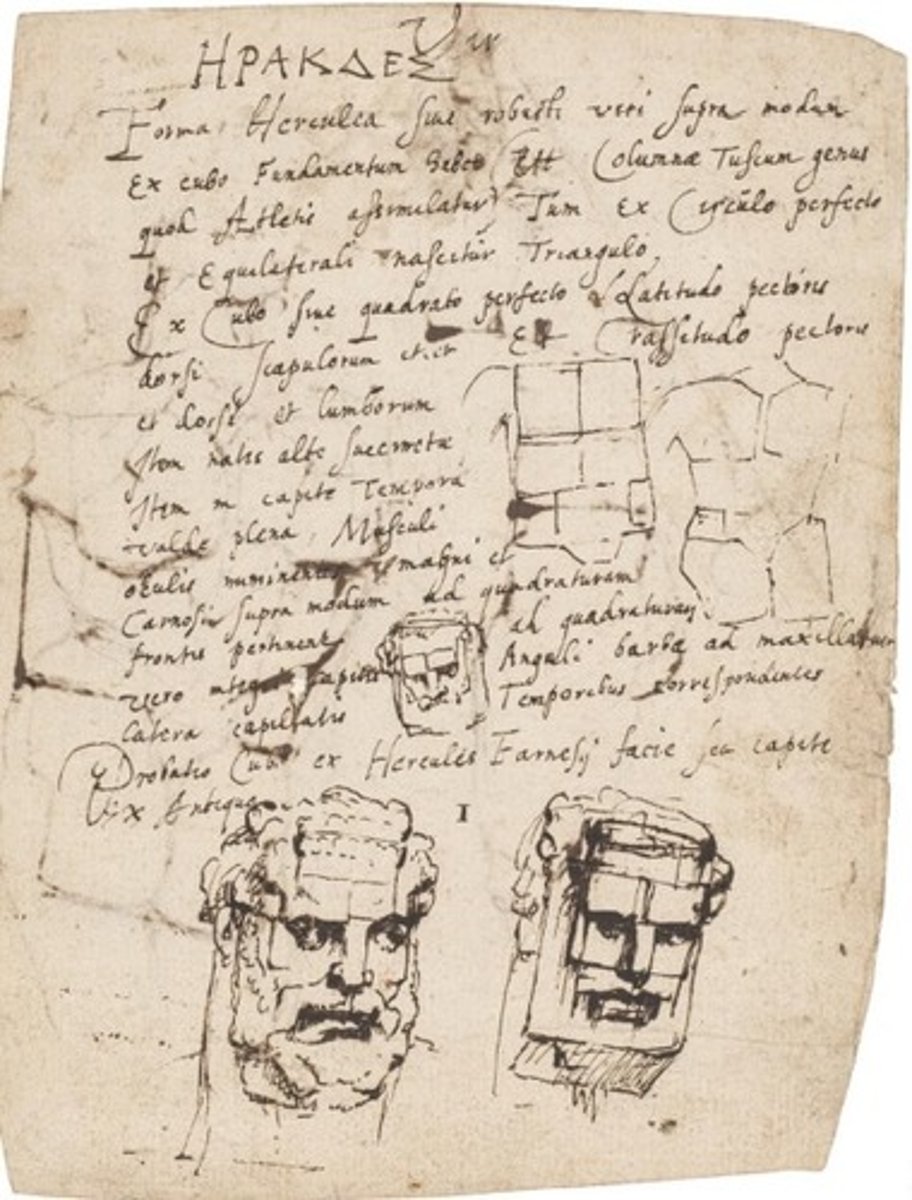 ΗΡΑΚΔΕΣ
Forma Herculea siue robusti viri supra modum
Ex cubo Fundamentum habet Est Columnæ Tuscum genus
quod Atletis assimulatur Tum Ex Circulo perfecto
et Equilaterali nascitur Triangulo
Ex Cubo siue quadrato perfecto Latitudo pectoris
dorsi scapulorum etcr Et Crassitudo pectoris
et dorsi et lumborum
Item nates alte succinctæ
Item in capite Tempora
valde plena, Musculi
oculis imminentes magni et
Carnosi supra modum ad quadraturam
frontis pertinent ad quadraturam
vero integram capitis Anguli barbæ ad maxillarum
latera capillatis Temporibus correspondentes
Probatio Cubi ex Herculis Farnesij facie seu capite
Ex Antiquo
1